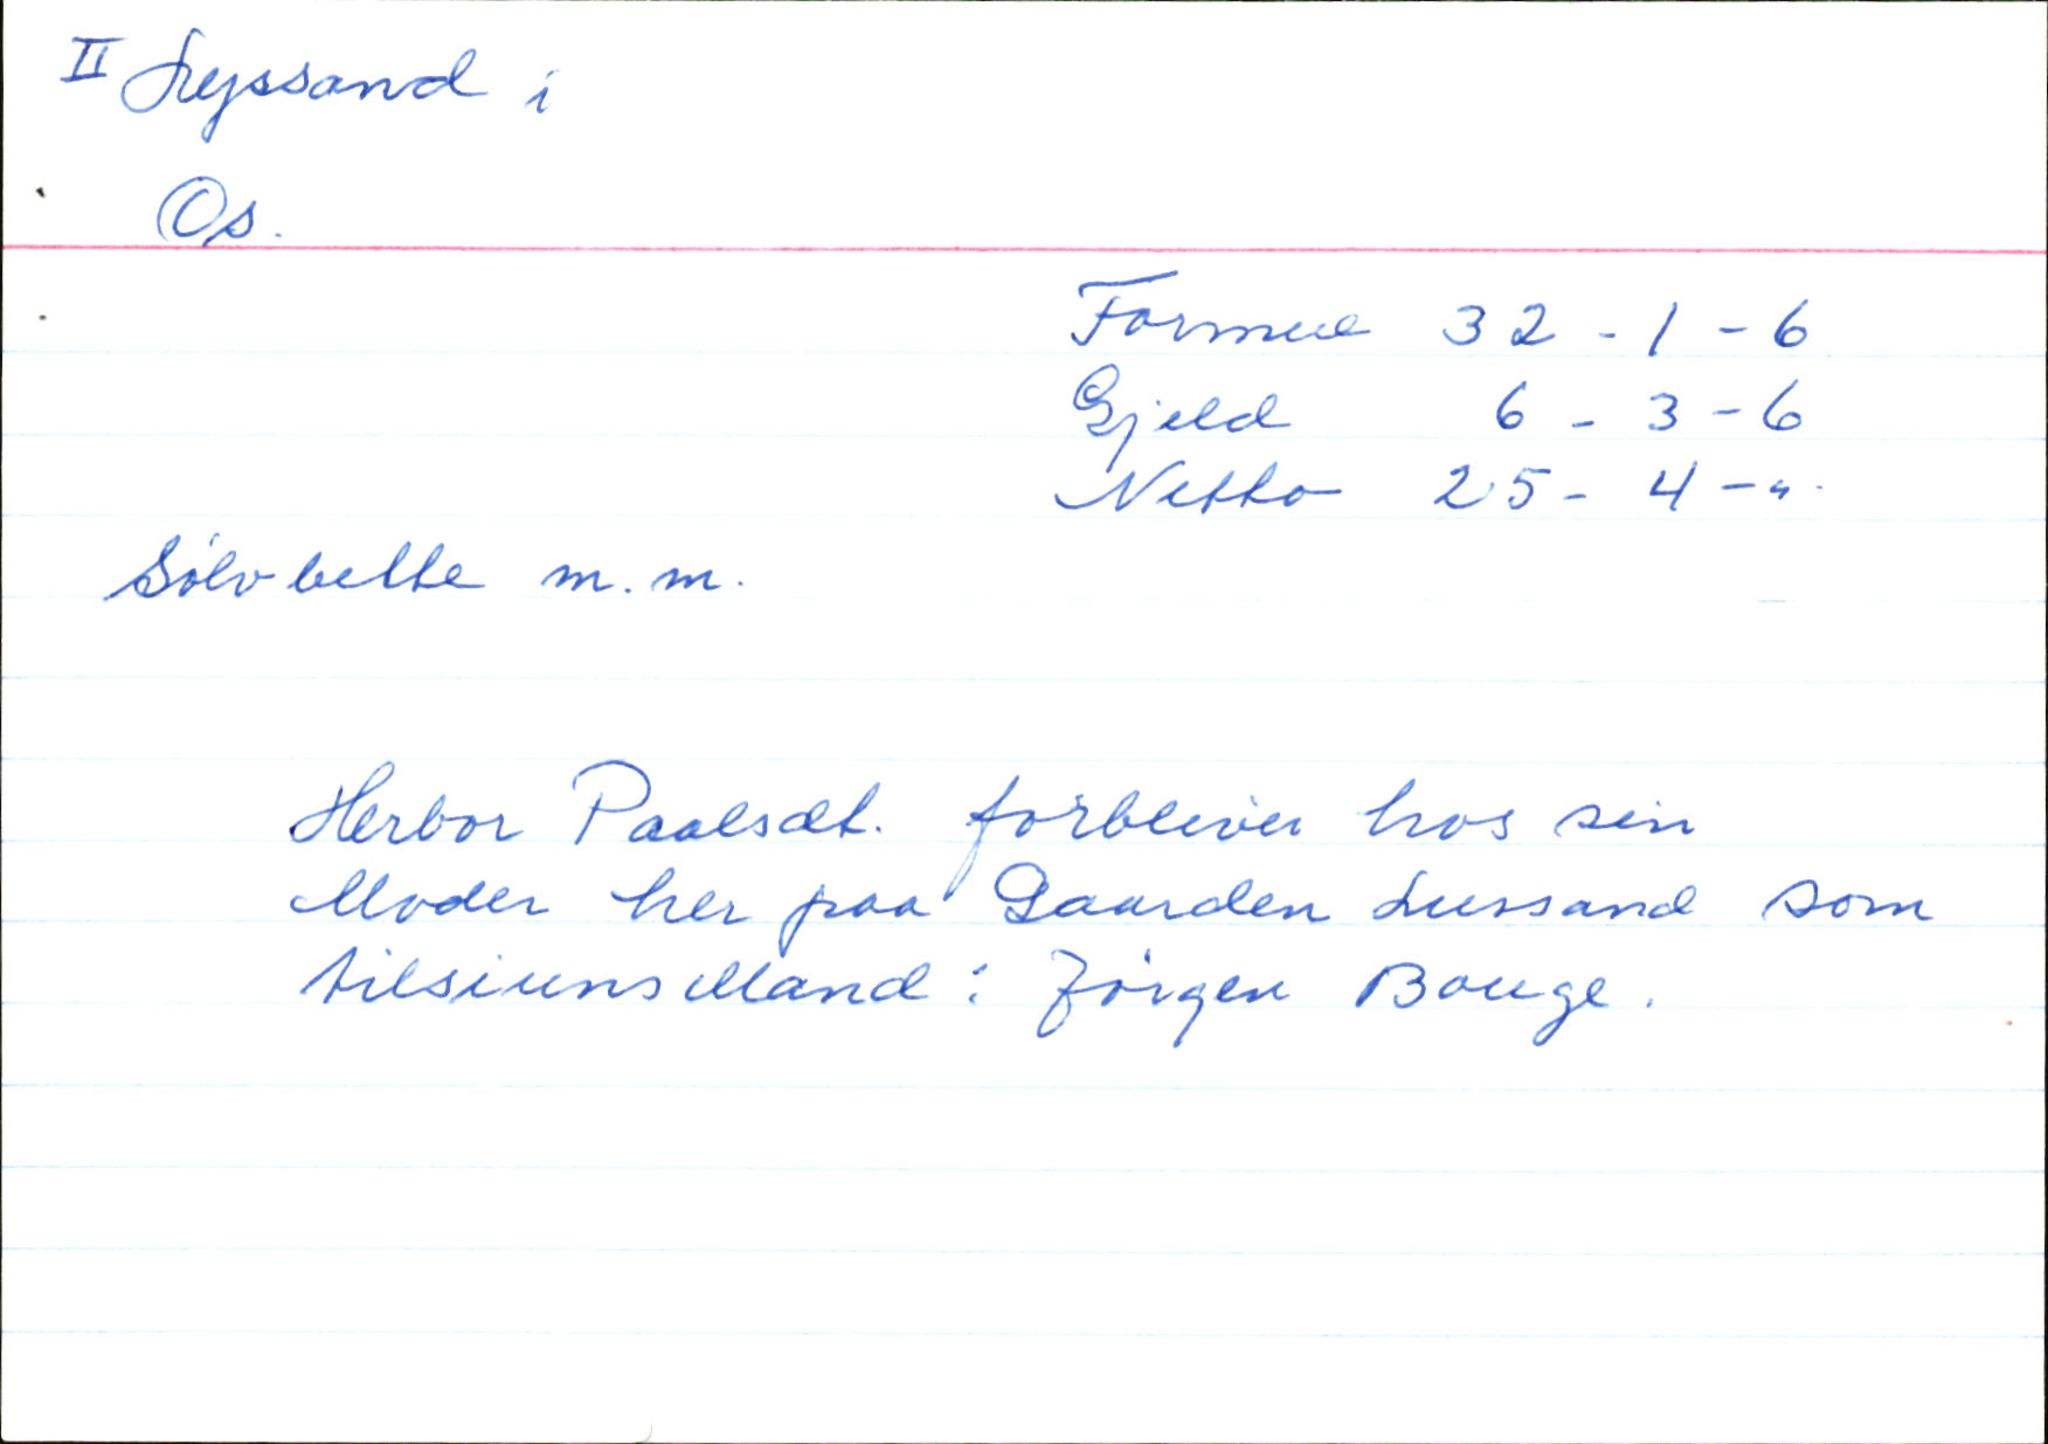 II Lyssand i
Os.
Formue 32 - 1 - 6
Gjeld 6 - 3 - 6
Netto 25 - 4 - "
Sølvbelte m.m.
Herbor Paalsdt. forbliver hos sin
Moder her paa Gaarden Lussand som
tilsiuns Mand: Jørgen Bouge.